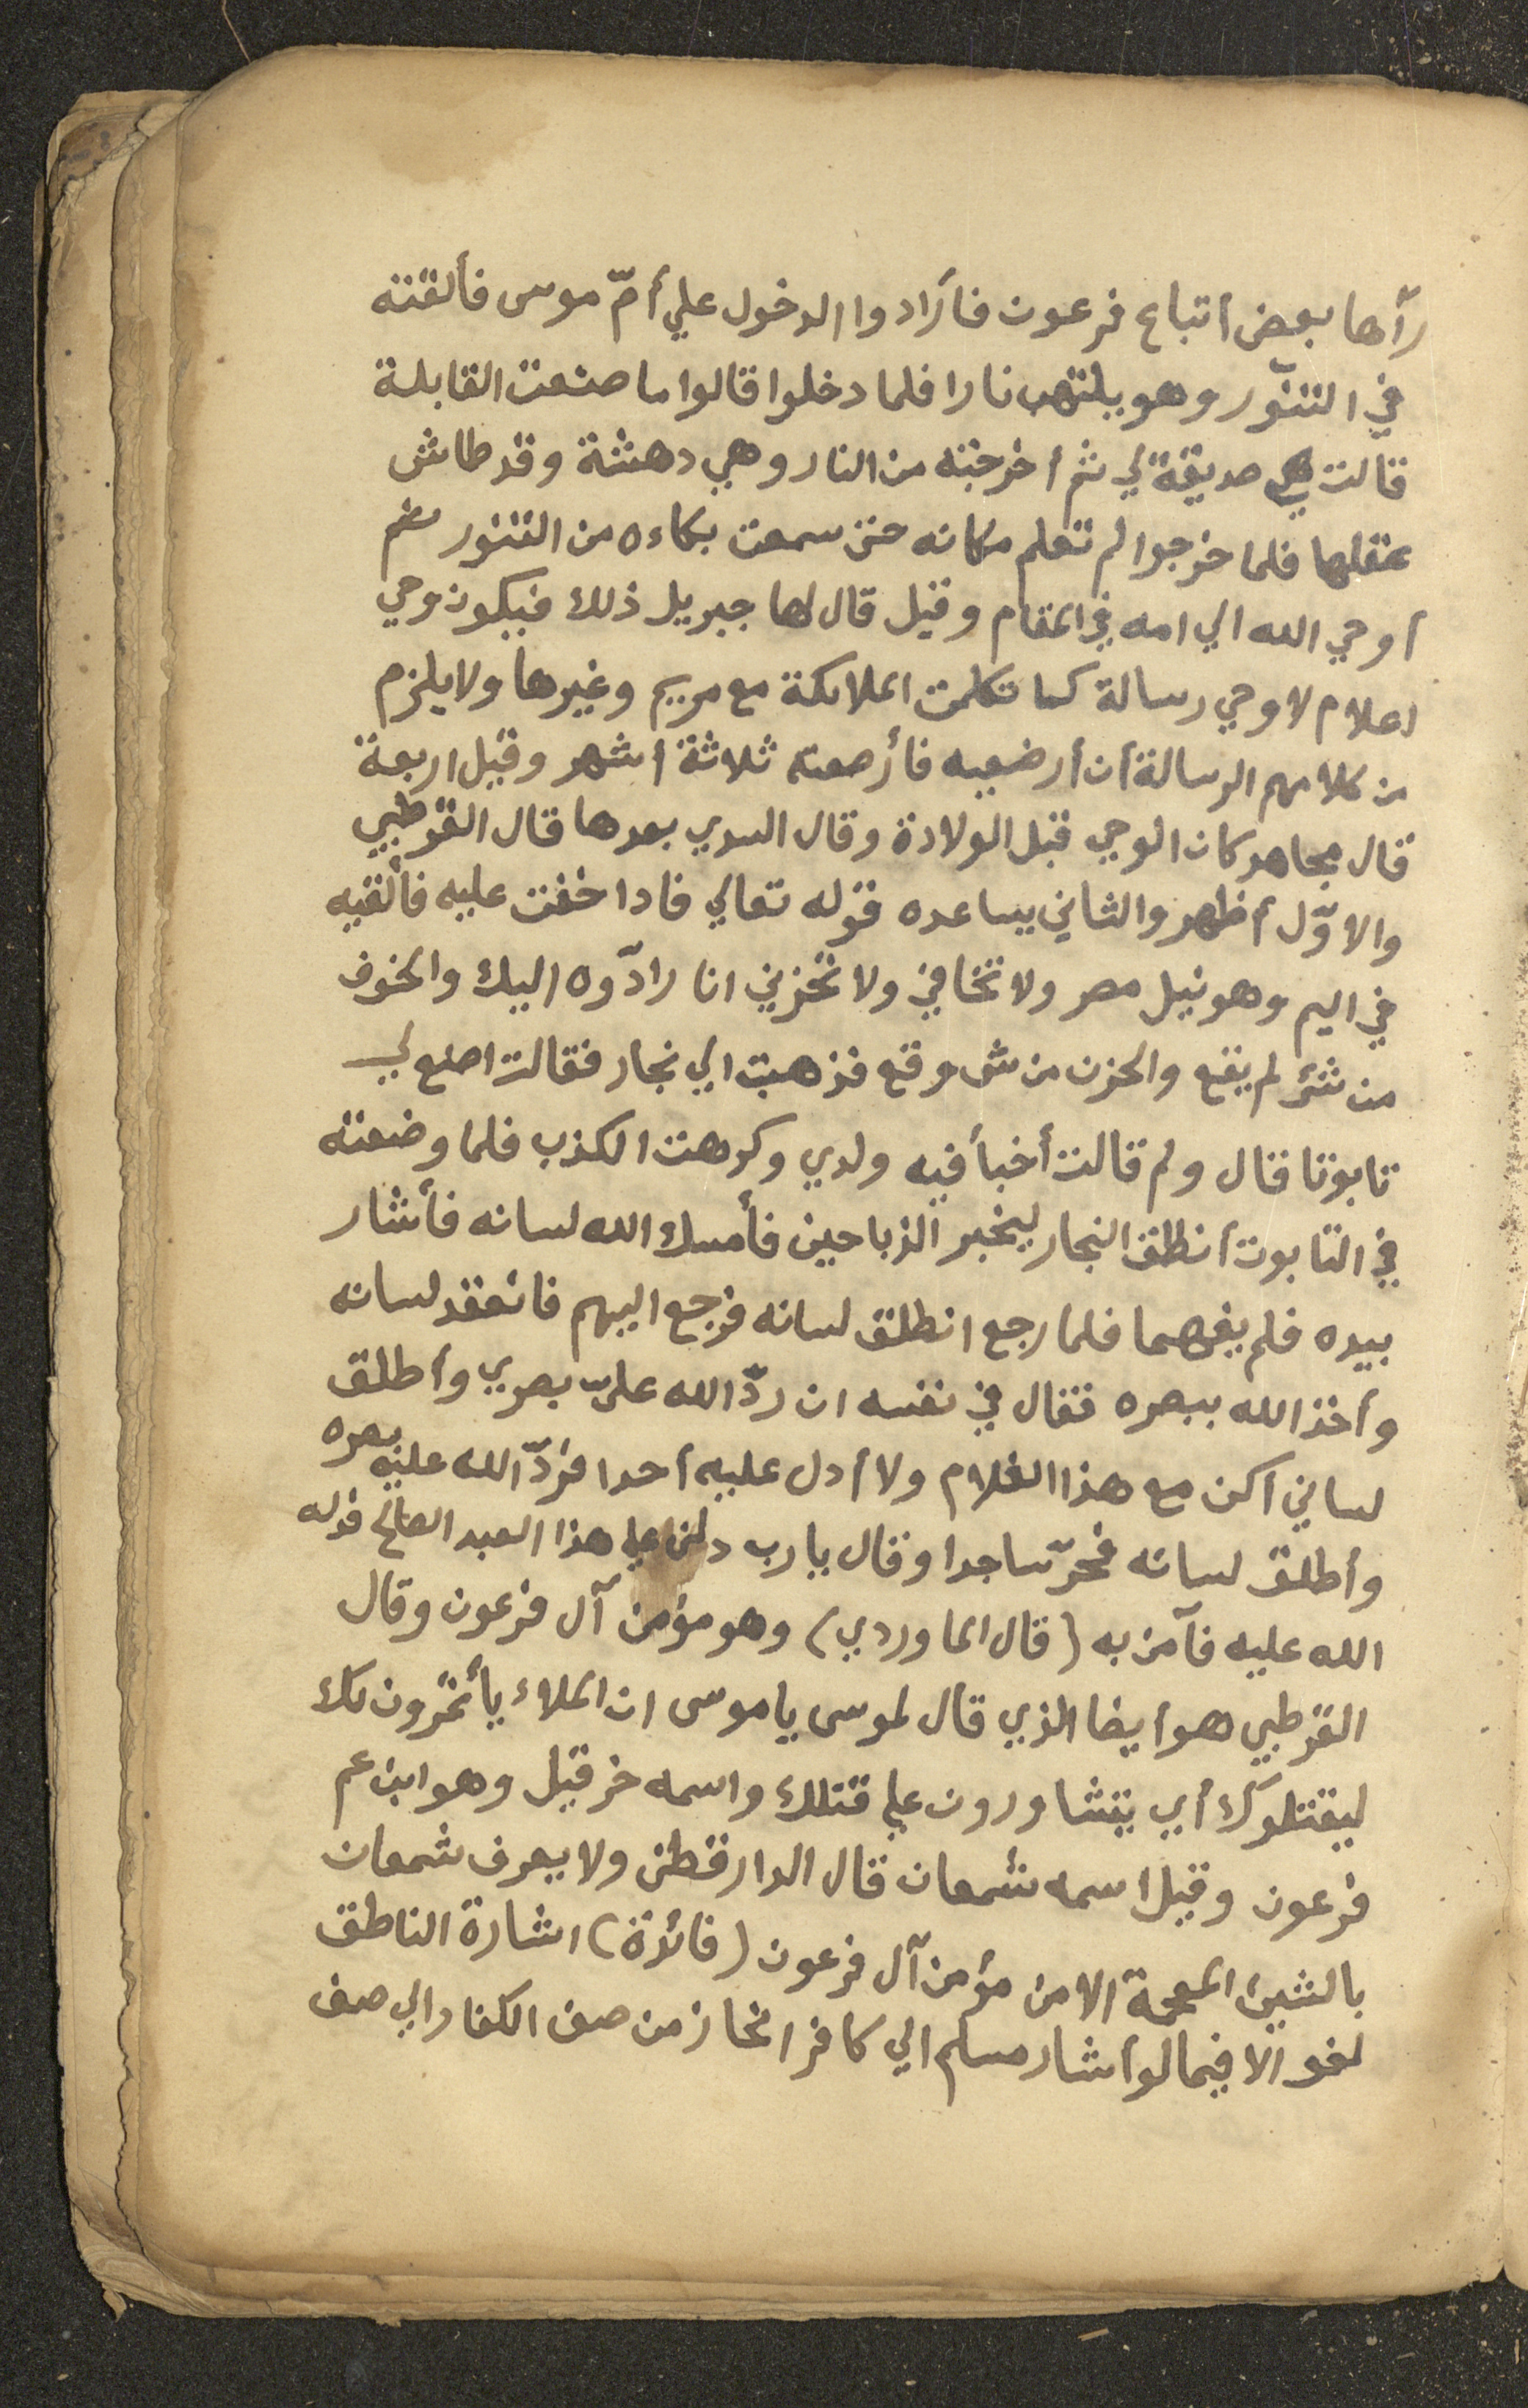 رآها بعض أتباع فرعون فأرادوا الدخول علي أمّ موسى فألقته
في التنّور وهو يلتهب نارا فلما دخلوا قالوا ما صنعت القابلة
قالت هي صديقة لي ثم أخرجته من النار وهي دهشة وقد طاش
عقلها فلما خرجوا لم تعلم مكانه حتى سمعت بكاءه من التنور ثم
أوحي الله الي امه في المقام وقيل قال لها جبريل ذلك فيكون وحي
اعلام لا وحي رسالة كما تكلمت الملائكة مع مريم وغيرها ولا يلزم
من كلامهم الرسالة أن أرضعيه فأرضعته ثلاثة أشهر وقيل اربعة
قال مجاهد كان الوحي قبل الولادة وقال السدي بعدها قال القرطبي
والاوّل أظهر والثاني يساعده قوله تعالي فاذا خفت عليه فألقيه
في اليم وهو نيل مصر ولا تخافي ولا تحزني انا رادّوه اليك والخوف
من شئ لم يقع والحزن من شئ وقع فذهبت الي نجار فقالت اصنع لي
تابوتا قال ولم قالت أخبأ فيه ولدي وكرهت الكذب فلما وضعته
في التابوت أنطلق النجار ليخبر الذباحين فأمسك الله لسانه فأشار
بيده فلم يفهما فلما رجع انطلق لسانه فرجع اليهم فانعقد لسانه
وأخذ الله ببصره فقال في نفسه ان ردّ الله عليّ بصري وأطلق
لساني أكن مع هذا الغلام ولا أدل عليه أحدا فردّ الله عليه بصره
وأطلق لسانه فخرّ ساجدا وقال يا رب دلني علي هذا العبد الصالح فدله
الله عليه فآمن به (قال الماوردي) وهو مؤمن آل فرعون وقال
القرطبي هو أيضا الذي قال لموسى يا موسى ان الملاء يأتمرون بك
ليقتلوك أي يتشاورون علي قتلك واسمه خرقيل وهو ابن عم
فرعون وقيل اسمه شمعان قال الدارقطني ولا يعرف شمعان
بالشين المعجمة الا من مؤمن آل فرعون (فائدة) اشارة الناطق
لغو الا فيما لو أشار مسلم الي كافر انحاز من صف الكفار الي صف